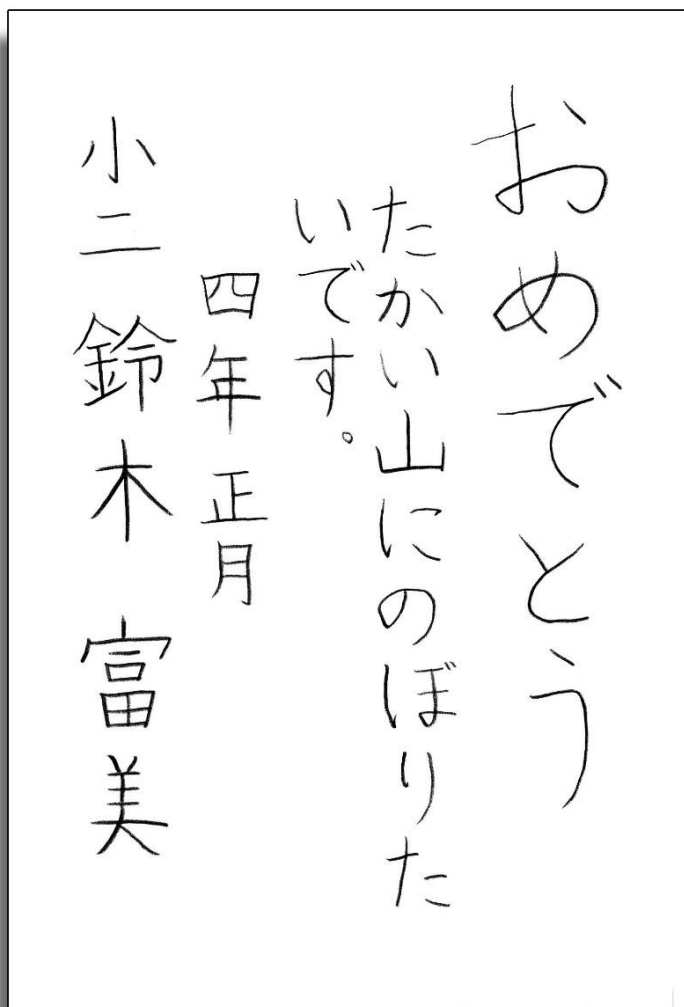 おめでとう
たかい山にのぼりた
いです。
四年 正月
小二 鈴木 富美